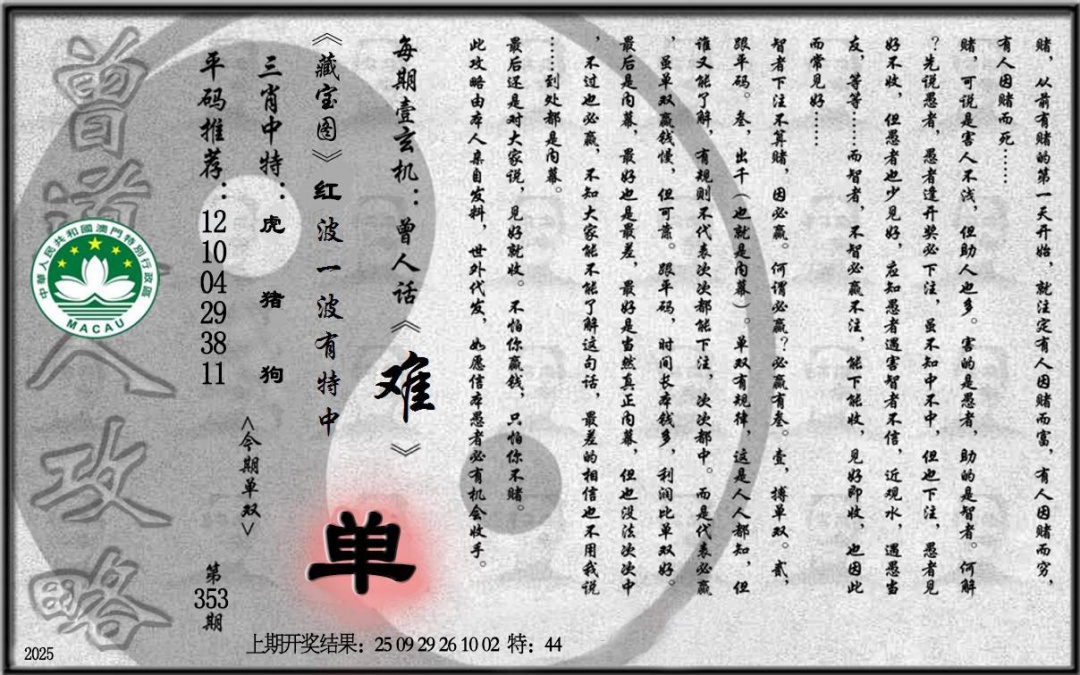 赌，从前有赌的第一天开始，就注定有人因赌而富，有人因赌而穷，
有人因赌而死……
赌，可说是害人不浅，但助人也多。害的是愚者，助的是智者。何解
？先说愚者，愚者逢开奖必下注，虽不知中不中，但也下注，愚者见
好不收，但愚者也少见好，应知愚者遇害智者不信，近观水，遇愚当
友，等等……而智者，不智必赢不注，能下能收，见好即收，也因此
而常见好……
智者下注不算赌，因必赢。何谓必赢？必赢有叁。壹，搏单双。贰，
跟平码。叁，出千（也就是内幕）。单双有规律，这是人人都知，但
谁又能了解，有规则不代表次次都能下注，次次都中。而是代表必赢
，虽单双赢钱慢，但可靠。跟平码，时间长本钱多，利润比单双好。
最后是内幕，最好也是最差，最好是当然真正内幕，但也没法次次中
，不过也必赢，不知大家能不能了解这句话，最差的相信也不用我说
……到处都是内幕。
最后还是对大家说，见好就收。不怕你赢钱，只怕你不赌。
此攻略由本人亲自发料，世外代发，如愿信本愚者必有机会收手。
每期壹玄机：曾人话《难》
《藏宝图》红波一波有特中
单
三肖中特：虎 猪 狗
<今期单双>
平码推荐：12 10 04 29 38 11
第353期
曾道人攻略
中華人民共和國澳門特別行政區
MACAU
上期开奖结果：25 09 29 26 10 02 特：44
2025